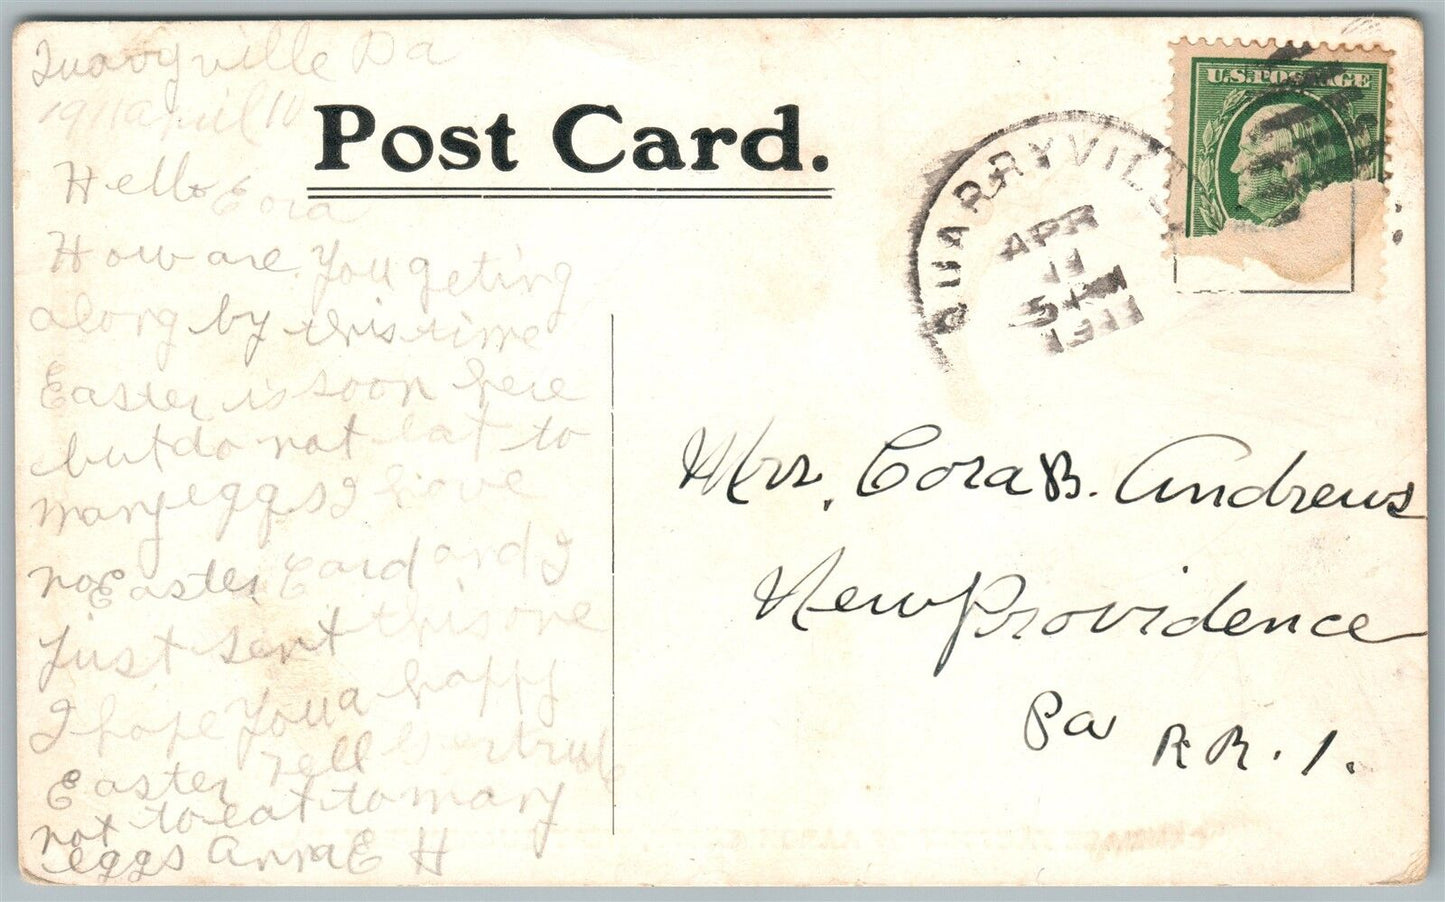 Quarryville Pa
1911 april 10
Post Card.
Hello Cora
How are you geting
along by this time
Easter is soon here
but do not eat to
many eggs I have
no Easter Card and I
just sent this one
I hope you a happy
Easter Tell Gertrude
not to eat to many
eggs Anna E H
U.S. POSTAGE
QUARRYVILLE
APR
11
5
1911
Mrs. Cora B. Andrews
New Providence
Pa R R. 1.